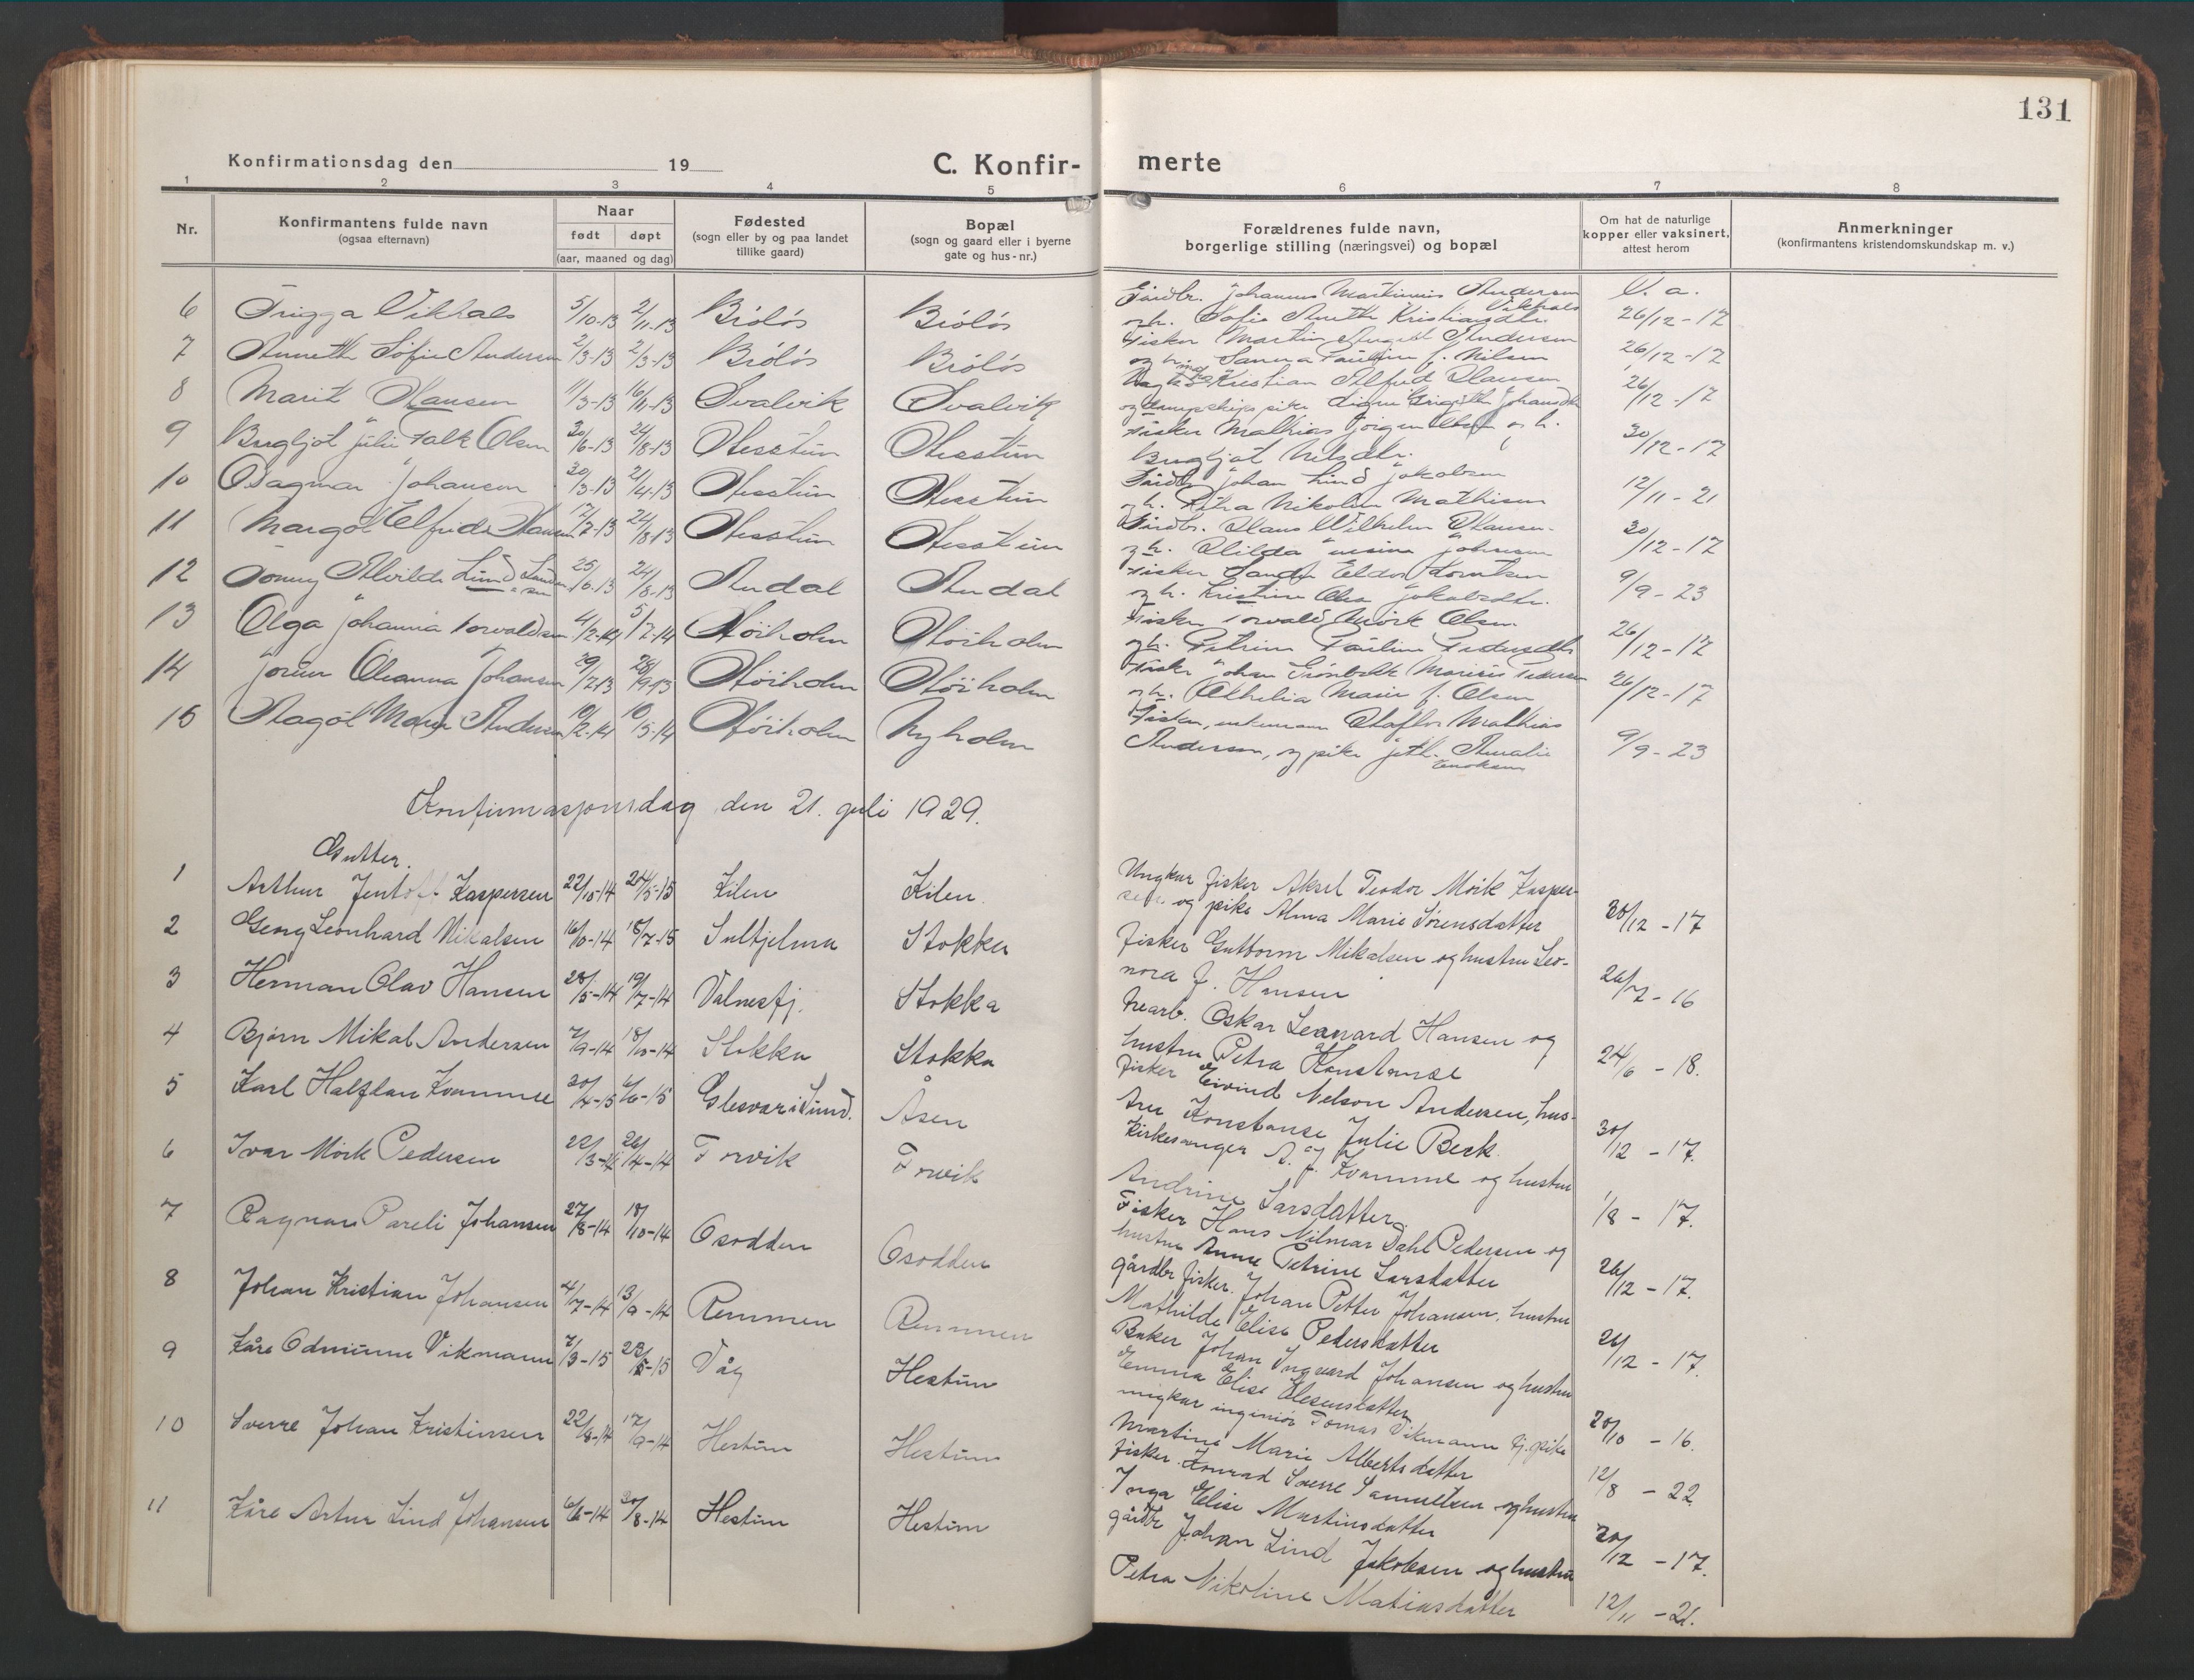 131
Konfirmationsdag den 19
C. Konfir- merte
1 2 3 4 5 6 7 8
Nr.
Konfirmantens fulde navn
(ogsaa efternavn)
Naar
født døpt
(aar, maaned og dag)
Fødested
(sogn eller by og paa landet
tillike gaard)
Bopæl
(sogn og gaard eller i byerne
gate og hus-nr.)
Forældrenes fulde navn,
borgerlige stilling (næringsvei) og bopæl
Om hat de naturlige
kopper eller vaksinert,
attest herom
Anmerkninger
(konfirmantens kristendomskundskap m. v.)
6 Frigga Vikhals 5/10-13 2/11-13 Brøløs Brøløs Gårdbr. Johannes Martinius Andersen Vikhals
og h. Sofie Anette Kristiansdtr. V. a. 26/12-17
7 Annette Sofie Andersen 2/3-13 2/3-13 Brøløs Brøløs Fisker Martin August Andersen
og h. Sanna Pauline f. Nilsen 26/12-17
8 Marit Hansen 11/3-13 16/11-13 Svalvik Svalvik Kristian Alfred Hansen
og dampskips pike Signe Johansdtr 26/12-17
9 Bergljot Julie Falk Olsen 30/6-13 24/8-13 Hesstun Hesstun Fisker Mathias Jørgen Olsen og h.
Bergljot Nelsdtr. 30/12-17
10 Dagmar Johansen 30/3-13 2/4-13 Hesstun Hesstun Gårdbr Johan Lind Jakobsen
og h. Petra Nikoline Mathisen 12/11-21
11 Margot Elfrida Hansen 12/7-13 24/8-13 Hesstun Hesstun Gårdbr. Hans Wilhelm Hansen
og h. Hilda Johnsen 30/12-17
12 Jonny Alvilde Lind 25/6-13 24/8-13 Audal Audal Fisker Sander Eldor Lorntsen
og h. Kristine Olea Jakobsdtr. 9/9-23
13 Olga Johanna Torvaldsen 4/2-14 5/7-14 Høiholm Høiholm Fisker Torvald Mørk Olsen
og h. Petrine Pauline Pedersdtr 26/12-17
14 Jorun Oleanna Johansen 29/7-13 28/9-13 Høiholm Høiholm Fisker Johan Grønbekk Marius Pedersen
og h. Othelia Marie f. Olsen 26/12-17
15 Magot Marie Andersen 10/2-14 10/5-14 Høiholm Nyholm Fisker, Mathias
Andersen, og pike Amalie
Enoksen 9/9-23
Konfirmasjonsdag den 21. juli 1929.
Gutter.
1 Arthur Jentoft Kaspersen 22/10-14 24/5-15 Kilen Kilen. Ungkar fisker Aksel Teodor Mørk Kasper-
sen. og pike Alma Marie Sørensdatter 30/12-17
2 Georg Leonhard Mikalsen 16/10-14 18/7-15 Sulitjelma Stokka Fisker Guttorm Mikalsen og hustru Leo-
nora J. Hansen 26/7-16
3 Herman Olav Hansen 28/5-14 19/7-14 Valnesfj. Stokka Nearb. Oskar Leonard Hansen og
hustru Petra Konstanse 24/6-18.
4 Bjørn Mikal Andersen 7/9-14 18/10-14 Stokka Stokka Fisker Eivind Nelson Andersen, hus-
tru Konstanse Julie Beck. 30/12-17.
5 Karl Halfdan Kvamme 20/4-15 6/6-15 Glesvær i Sund. Åsen Kirkesanger A. J. Kvamme og hustru
Andrine Larsdatter. 1/8-17.
6 Ivar Mørk Pedersen 22/3-14 26/4-14 Forvik Forvik Fisker Hans Hilmar Dahl Pedersen og
hustru Anne Petrine Larsdatter 26/12-17.
7 Ragnar Pareli Johansen 27/8-14 18/10-14 Osodden Osodden gårdbr fisker. Johan Petter Johansen, hustru
Mathilde Elise Pedersdatter 26/12-17.
8 Johan Kristian Johansen 4/7-14 13/9-14 Remmen Remmen Baker Johan Ingvard Johansen og hustru
Emma Elise Elesensdatter 20/10-16.
9 Kåre Odmunn Vikmann 7/3-15 23/5-15 Våg Hestun ungkar ingeniør Tomas Vikmann fj. pike
Martine Marie Albertsdatter 12/8-22
10 Sverre Johan Kristensen 22/8-14 17/9-14 Hestun Hestun fisker. Konrad Sverre Samuelsen og hustru
Inga Elise Martinsdatter 30/12-17.
11 Kåre Artur Lind Johansen 6/6-14 30/8-14 Hestun Hestun gårdbr Johan Lind Jakobsen og hustru
Petra Nikoline Matiasdatter 12/11-21.